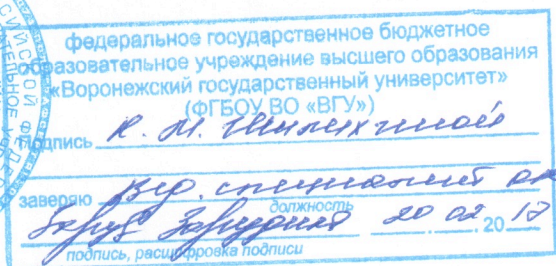 федеральное государственное бюджетное
образовательное учреждение высшего образования
«Воронежский государственный университет»
(ФГБОУ ВО «ВГУ»)
Подпись К. М. Шилихиной
заверяю Вед. специалист
должность
20 02 2017
подпись, расшифровка подписи